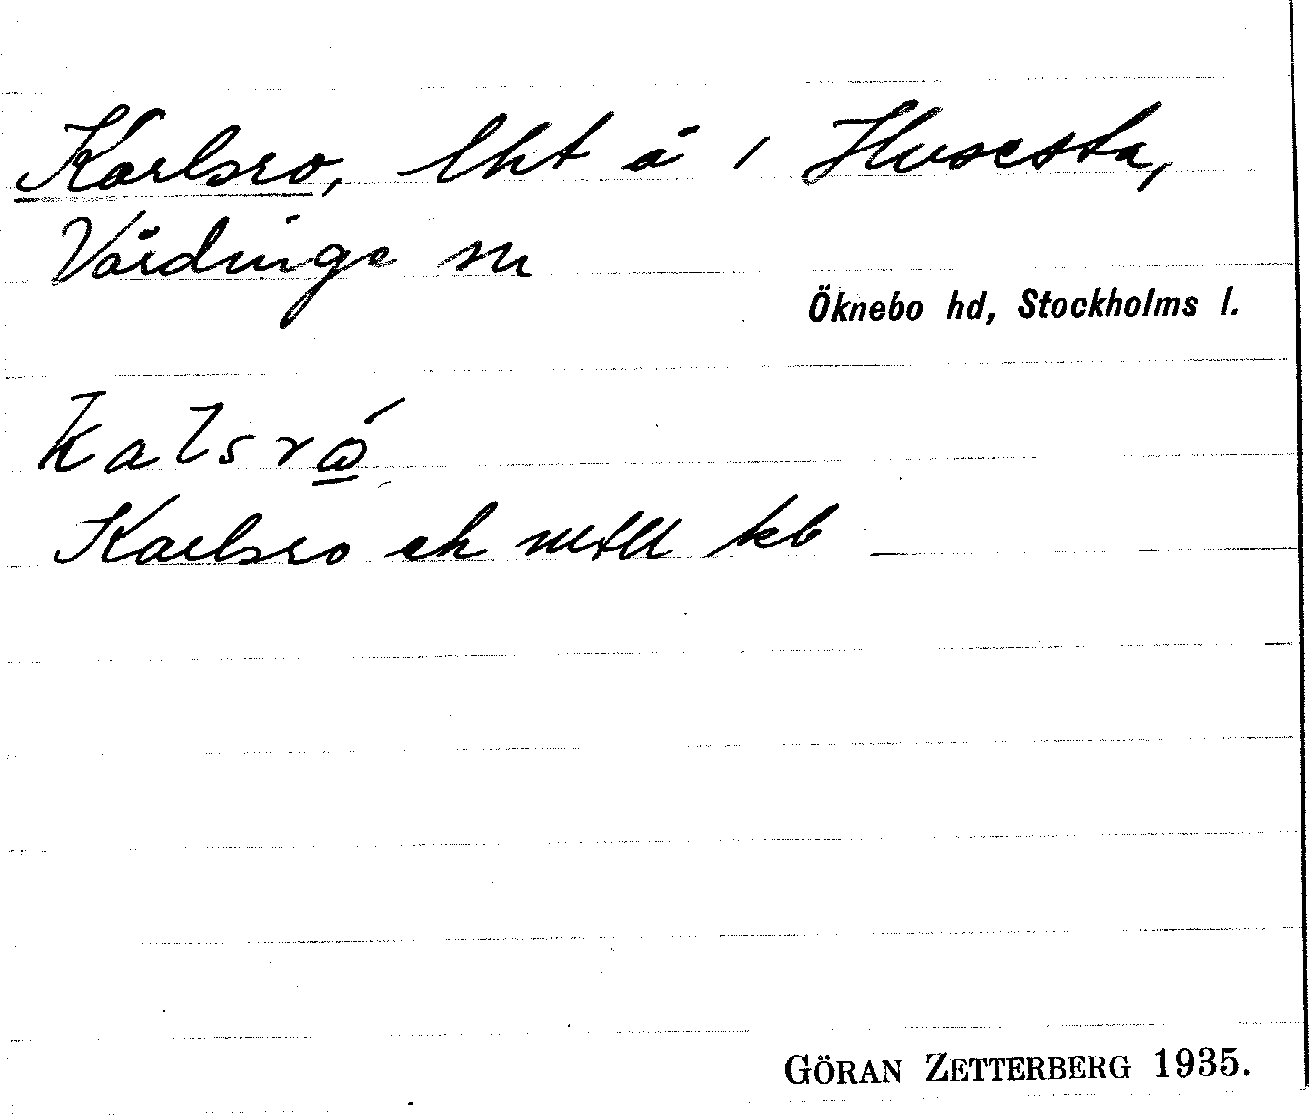 Karlsro, lht å 1 Husesta,
Vårdinge sn
Öknebo hd, Stockholms l.
kalsró̲
Karlsro ek mtll kb
GÖRAN ZETTERBERG 1935.